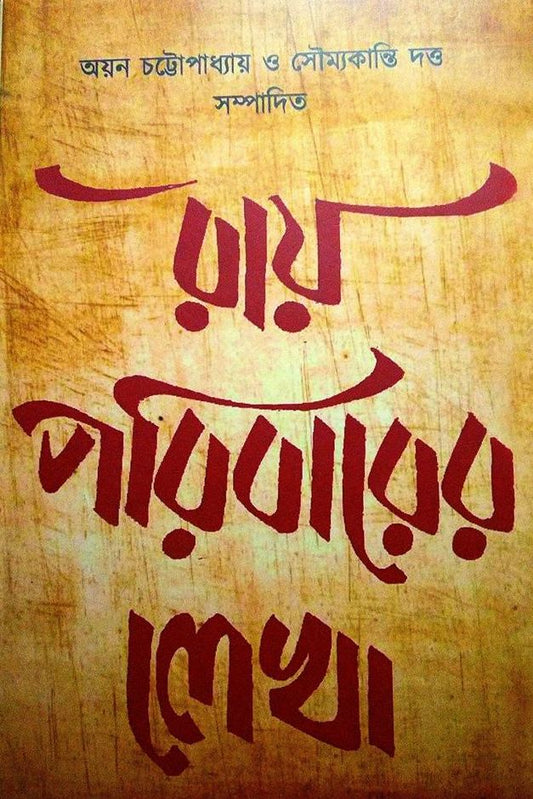 অয়ন চট্টোপাধ্যায় ও সৌম্যকান্তি দত্ত
সম্পাদিত
রায়
পরিবারের
লেখা